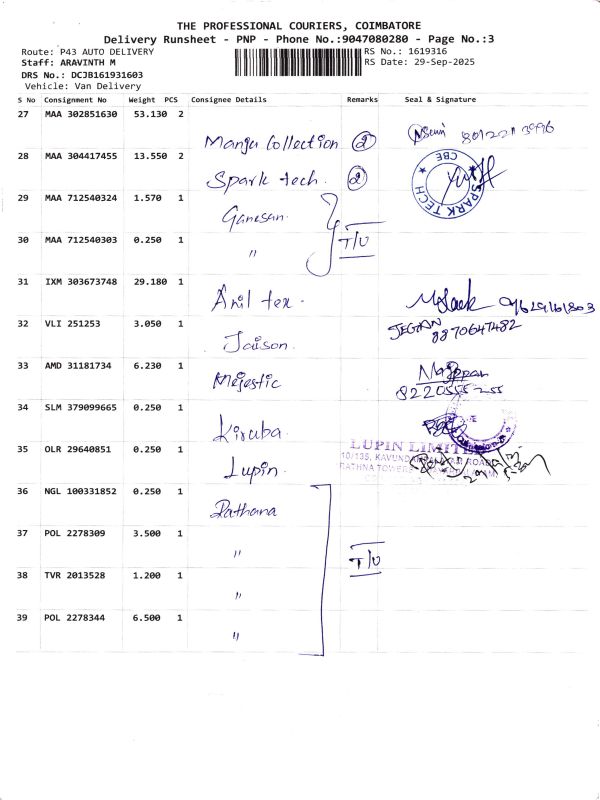 THE PROFESSIONAL COURIERS, COIMBATORE
Delivery Runsheet - PNP - Phone No.:9047080280 - Page No.:3
Route: P43 AUTO DELIVERY RS No.: 1619316
Staff: ARAVINTH M RS Date: 29-Sep-2025
DRS No.: DCJB161931603
Vehicle: Van Delivery
S No Consignment No Weight PCS Consignee Details Remarks Seal & Signature
27 MAA 302851630 53.130 2
Manju Collection 2
28 MAA 304417455 13.550 2
Spark tech. 2 SPARK TECH CBE
29 MAA 712540324 1.570 1
Ganesan.
30 MAA 712540303 0.250 1
" T/U
31 IXM 303673748 29.180 1
Anil tex.
32 VLI 251253 3.050 1
JEGAN
8870647482
Jaison.
33 AMD 31181734 6.230 1
Majestic
8220555255
34 SLM 379099665 0.250 1
Kiruba.
35 OLR 29640851 0.250 1
LUPIN LIMITED
Lupin.
36 NGL 100331852 0.250 1
Rathana
37 POL 2278309 3.500 1
" T/U
38 TVR 2013528 1.200 1
"
39 POL 2278344 6.500 1
"